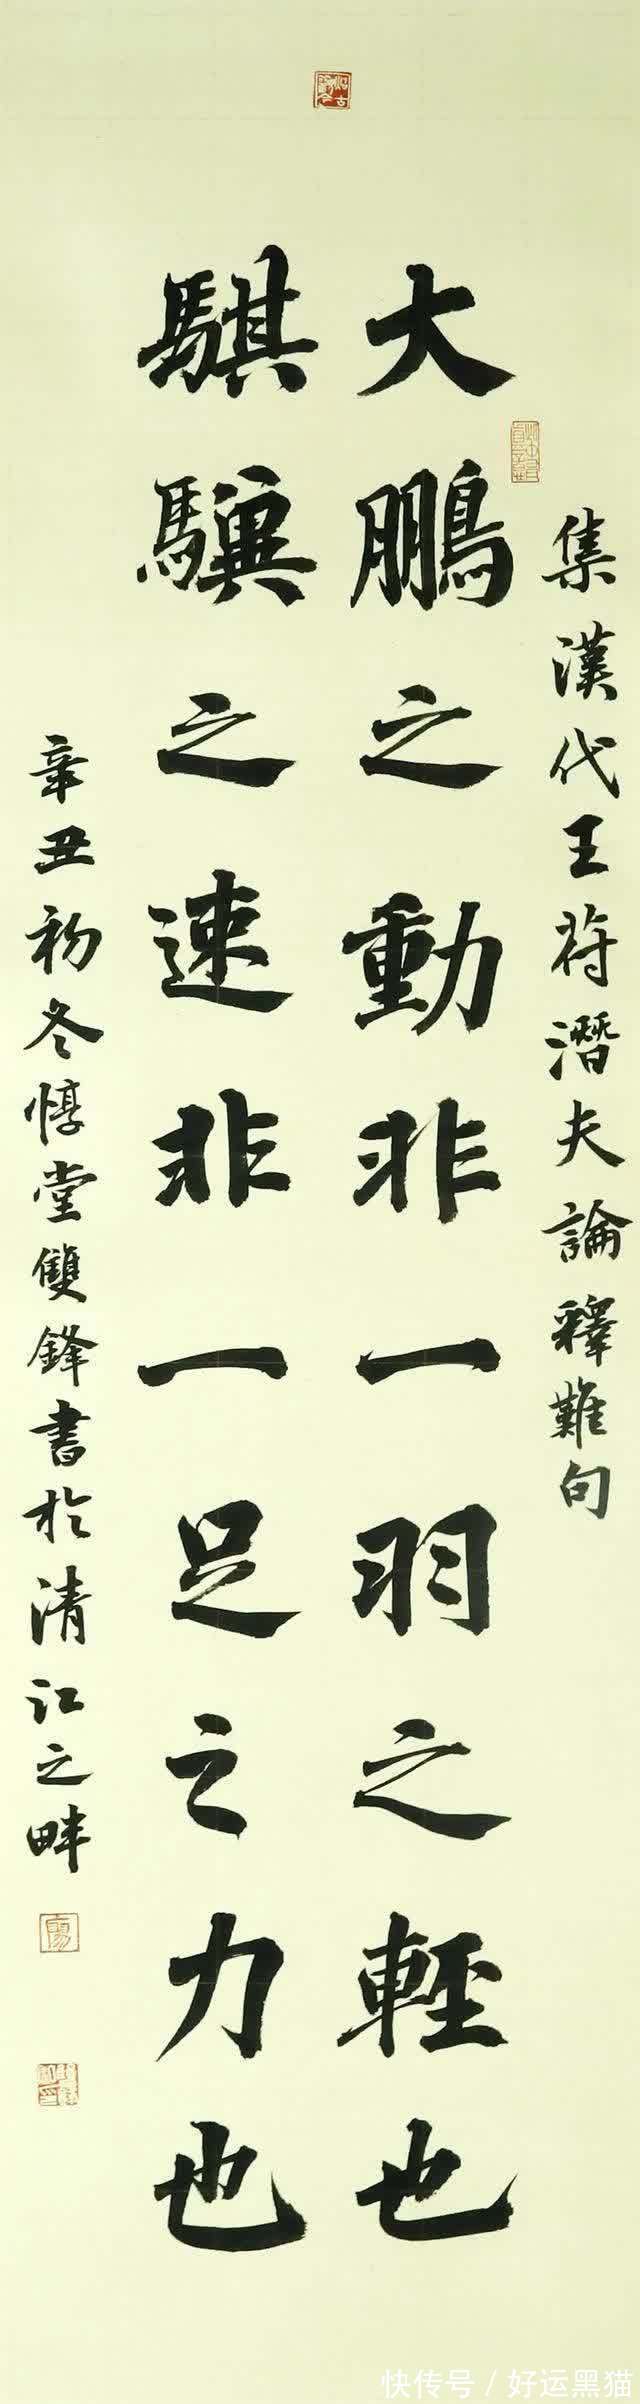 集漢代王符潛夫論釋難句
大鵬之動非一羽之輕也
騏驥之速非一足之力也
辛丑初冬惇堂雙鋒書於清江之畔
快传号/好运黑猫